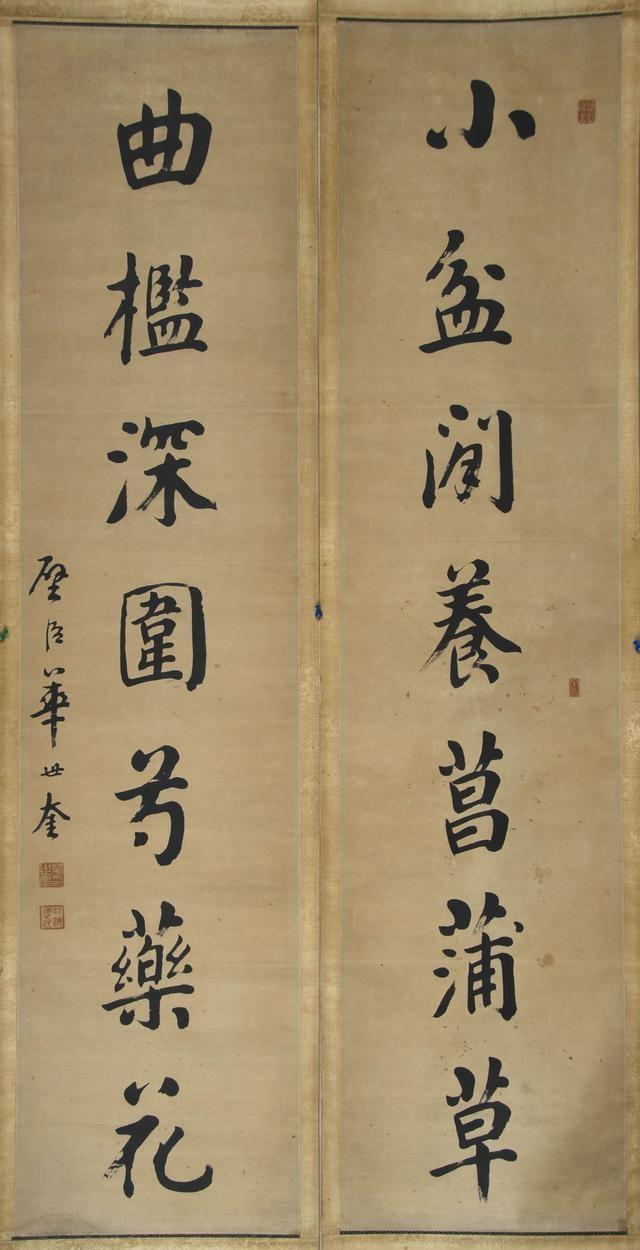 小盆閒養菖蒲草
曲檻深圍芍藥花
壁臣華世奎